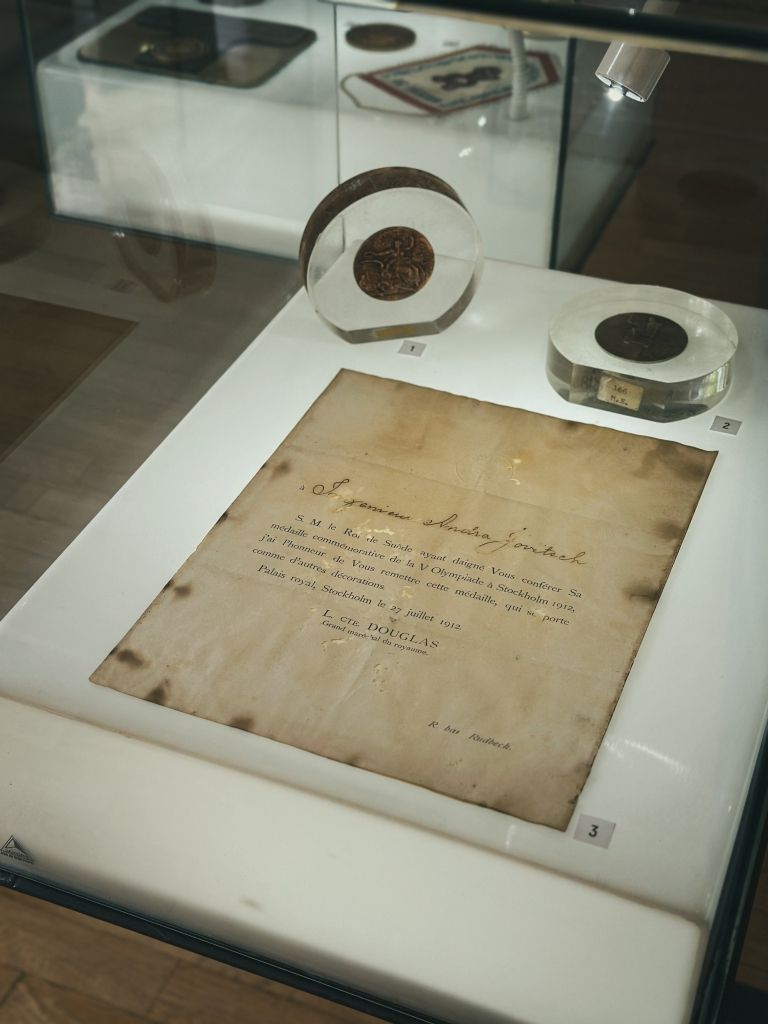 1
2
166
à Ingenieur Andra Jovitsch
S. M. le Roi de Suède ayant daigné Vous conférer Sa
médaille commémorative de la V Olympiade à Stockholm 1912,
j'ai l'honneur de Vous remettre cette médaille, qui se porte
comme d'autres décorations.
Palais royal, Stockholm le 27 juillet 1912.
L. CTE. DOUGLAS
Grand maréchal du royaume.
R bas Rudbeck.
3